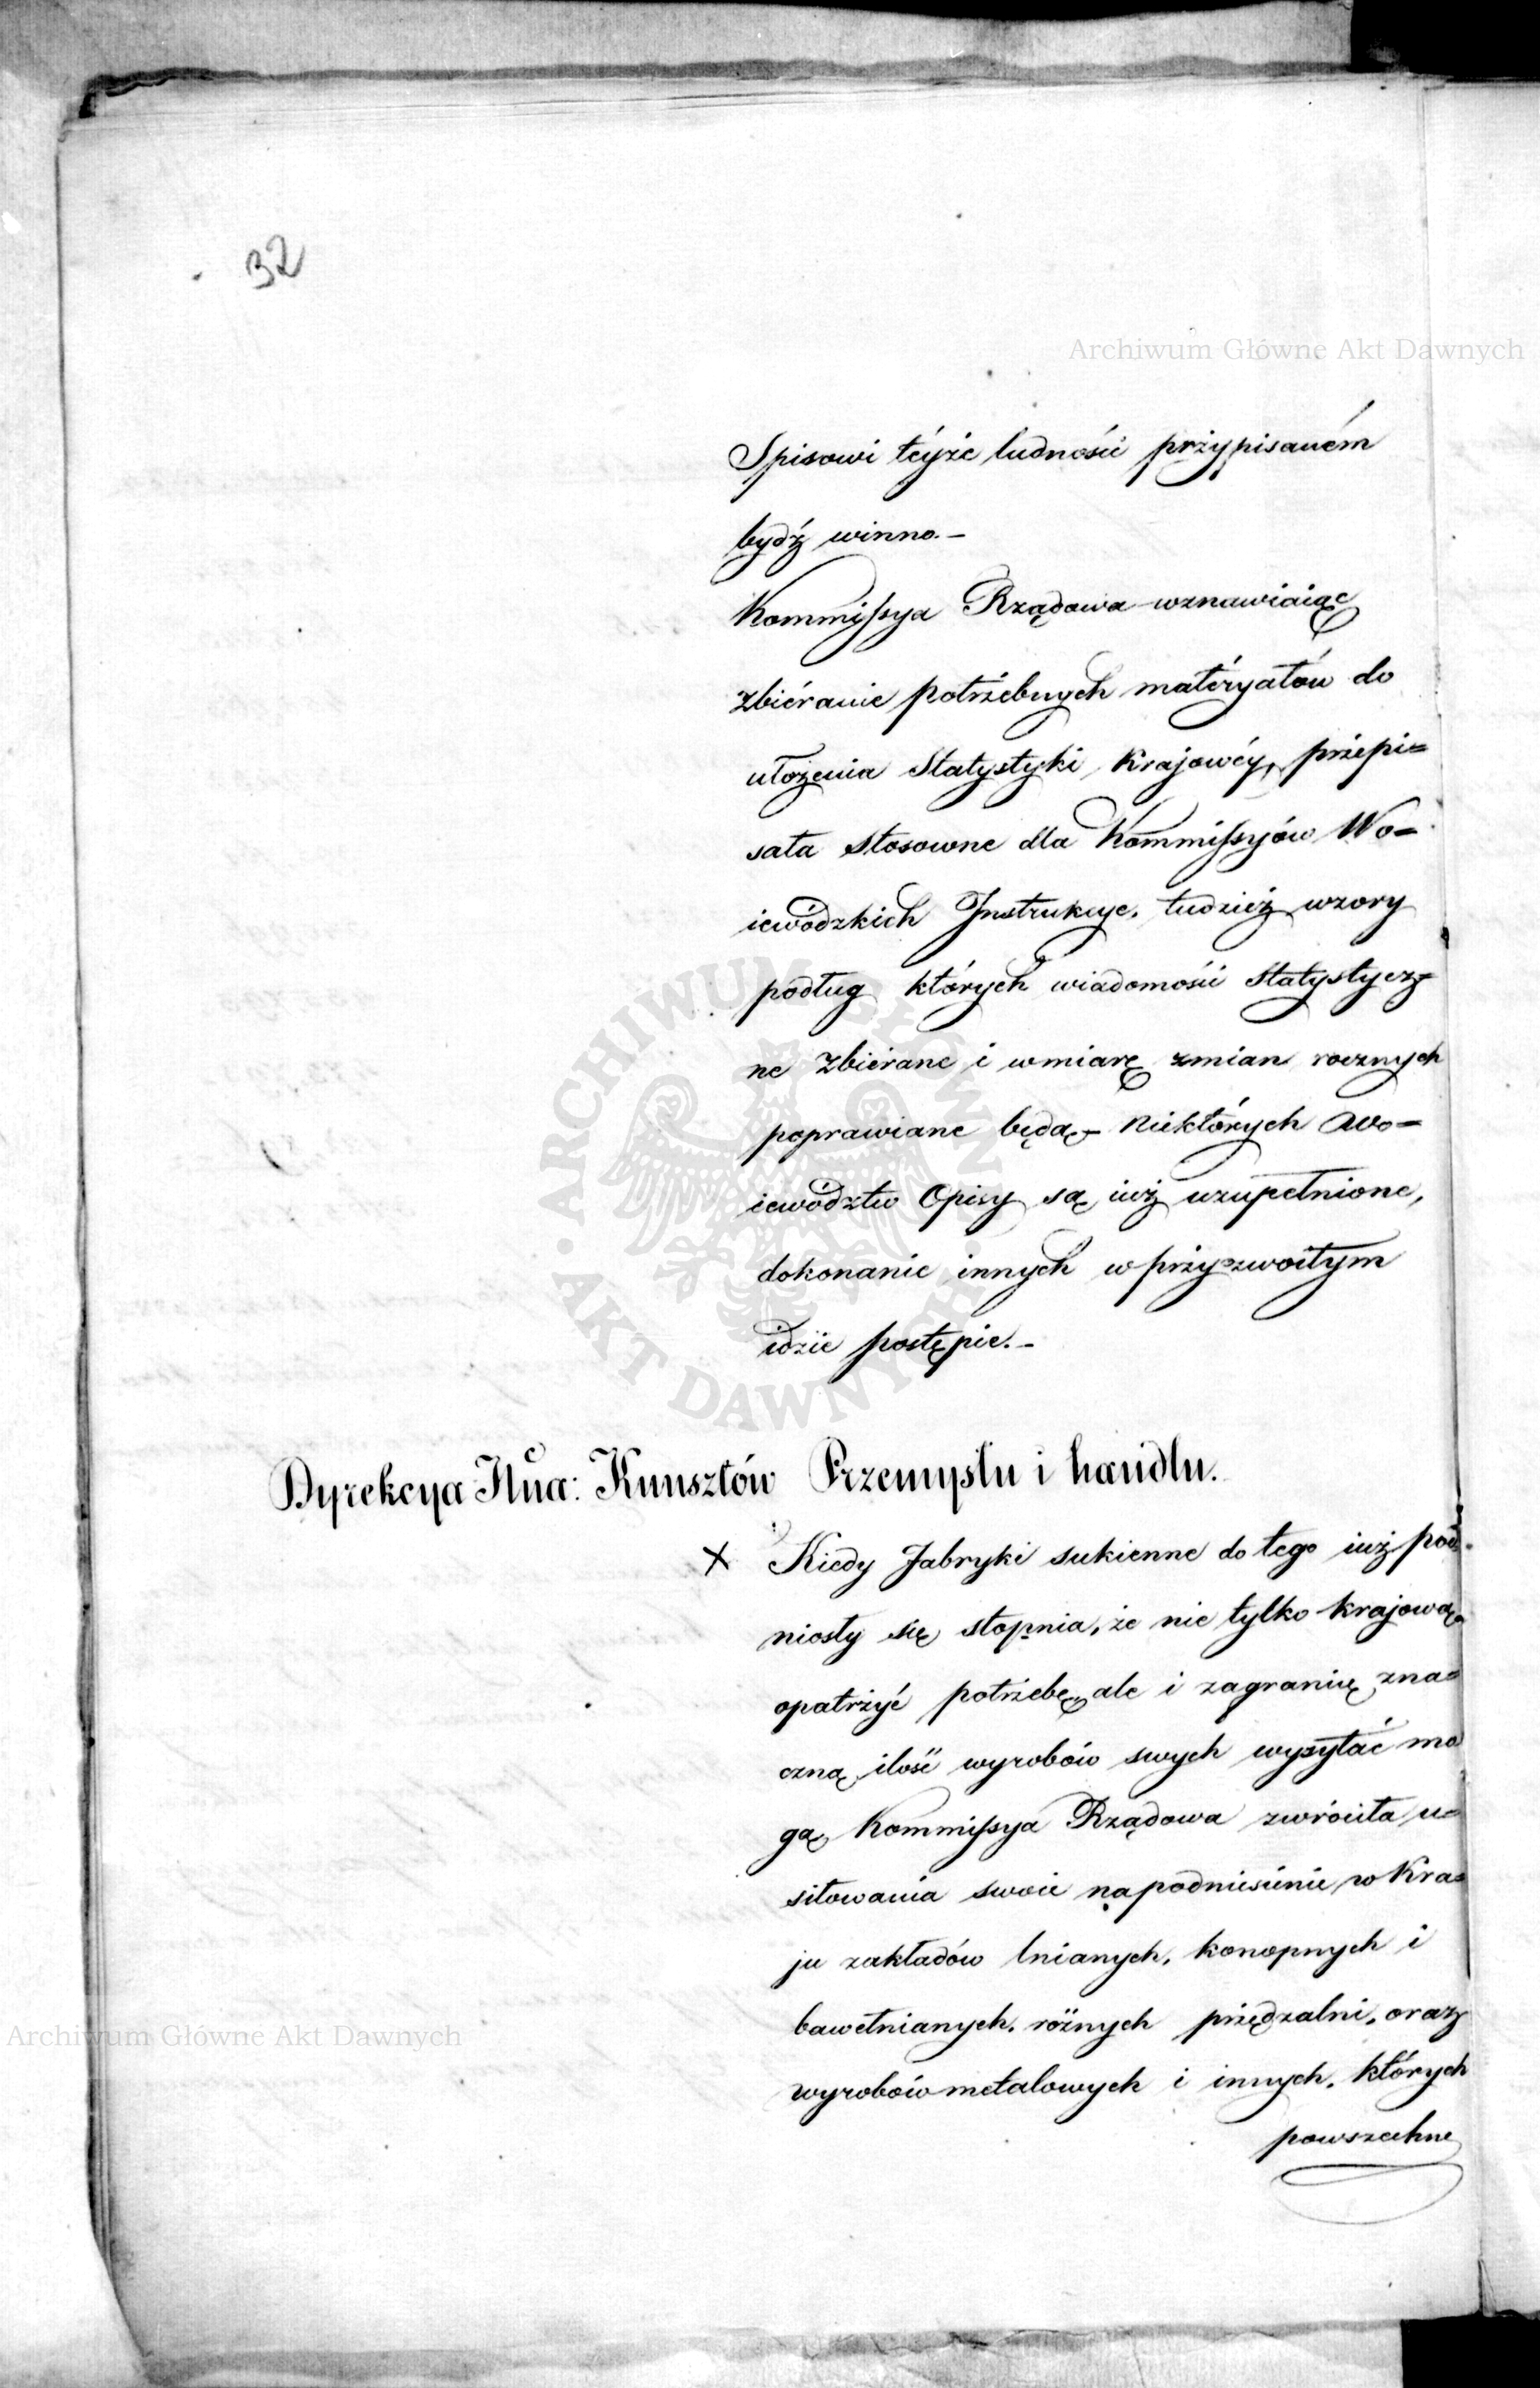 32
Archiwum Główne Akt Dawnych
Spisowi téyże ludności przypisaném
bydź winno.–
Kommissya Rządowa wznawiaiąc
zbiéranie potrzebnych matéryałów do
ułożenia Statystyki Krajowéy, przepi=
sała stosowne dla Kommissyów Wo=
iewódzkich Instrukcye, tudzież wzory
podług których wiadomości Statystycz=
ne zbiérane i w miarę zmian rocznych
poprawiane będą – Niektórych Wo=
iewództw Opisy są iuż uzupełnione,
dokonanie innych w przyzwoitym
idzie postępie.–
Dyrekcya IIga: Kunsztów Przemysłu i handlu.
x Kiedy Fabryki sukienne do tego iuż pod=
niosły się stopnia, że nie tylko krajową
opatrzyć potrzebę, ale i zagranicę zna=
czną ilość wyrobów swych wysyłać mo
gą, Kommissya Rządowa zwróciła u=
siłowania swoie na podniesienie w Kra=
ju zakładów lnianych, konopnych i
bawełnianych, różnych przędzalni, oraz
wyrobów metalowych i innych, których
powszechne
Archiwum Główne Akt Dawnych
ARCHIWUM GŁÓWNE · AKT DAWNYCH ·